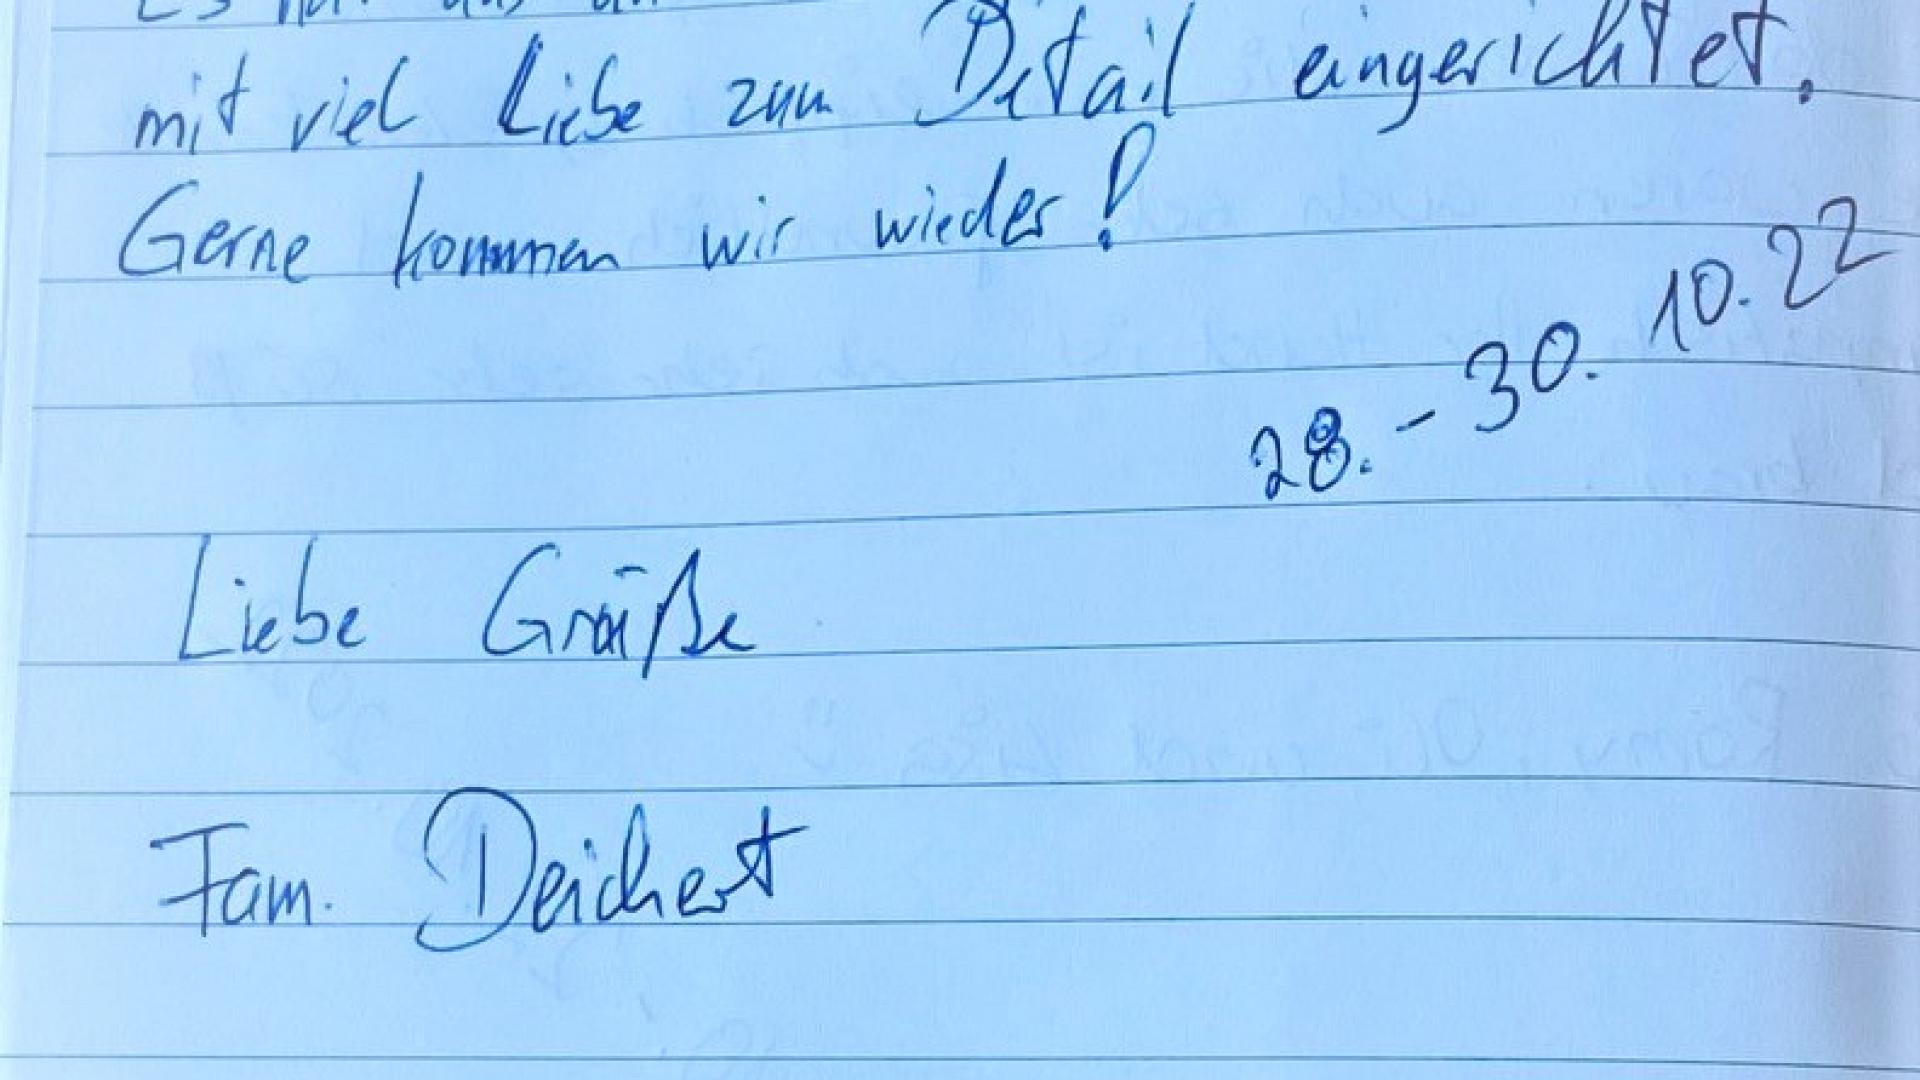 mit viel Liebe zum Detail eingerichtet.
Gerne kommen wir wieder!
28. - 30. 10. 22
Liebe Grüße
Fam. Deichert